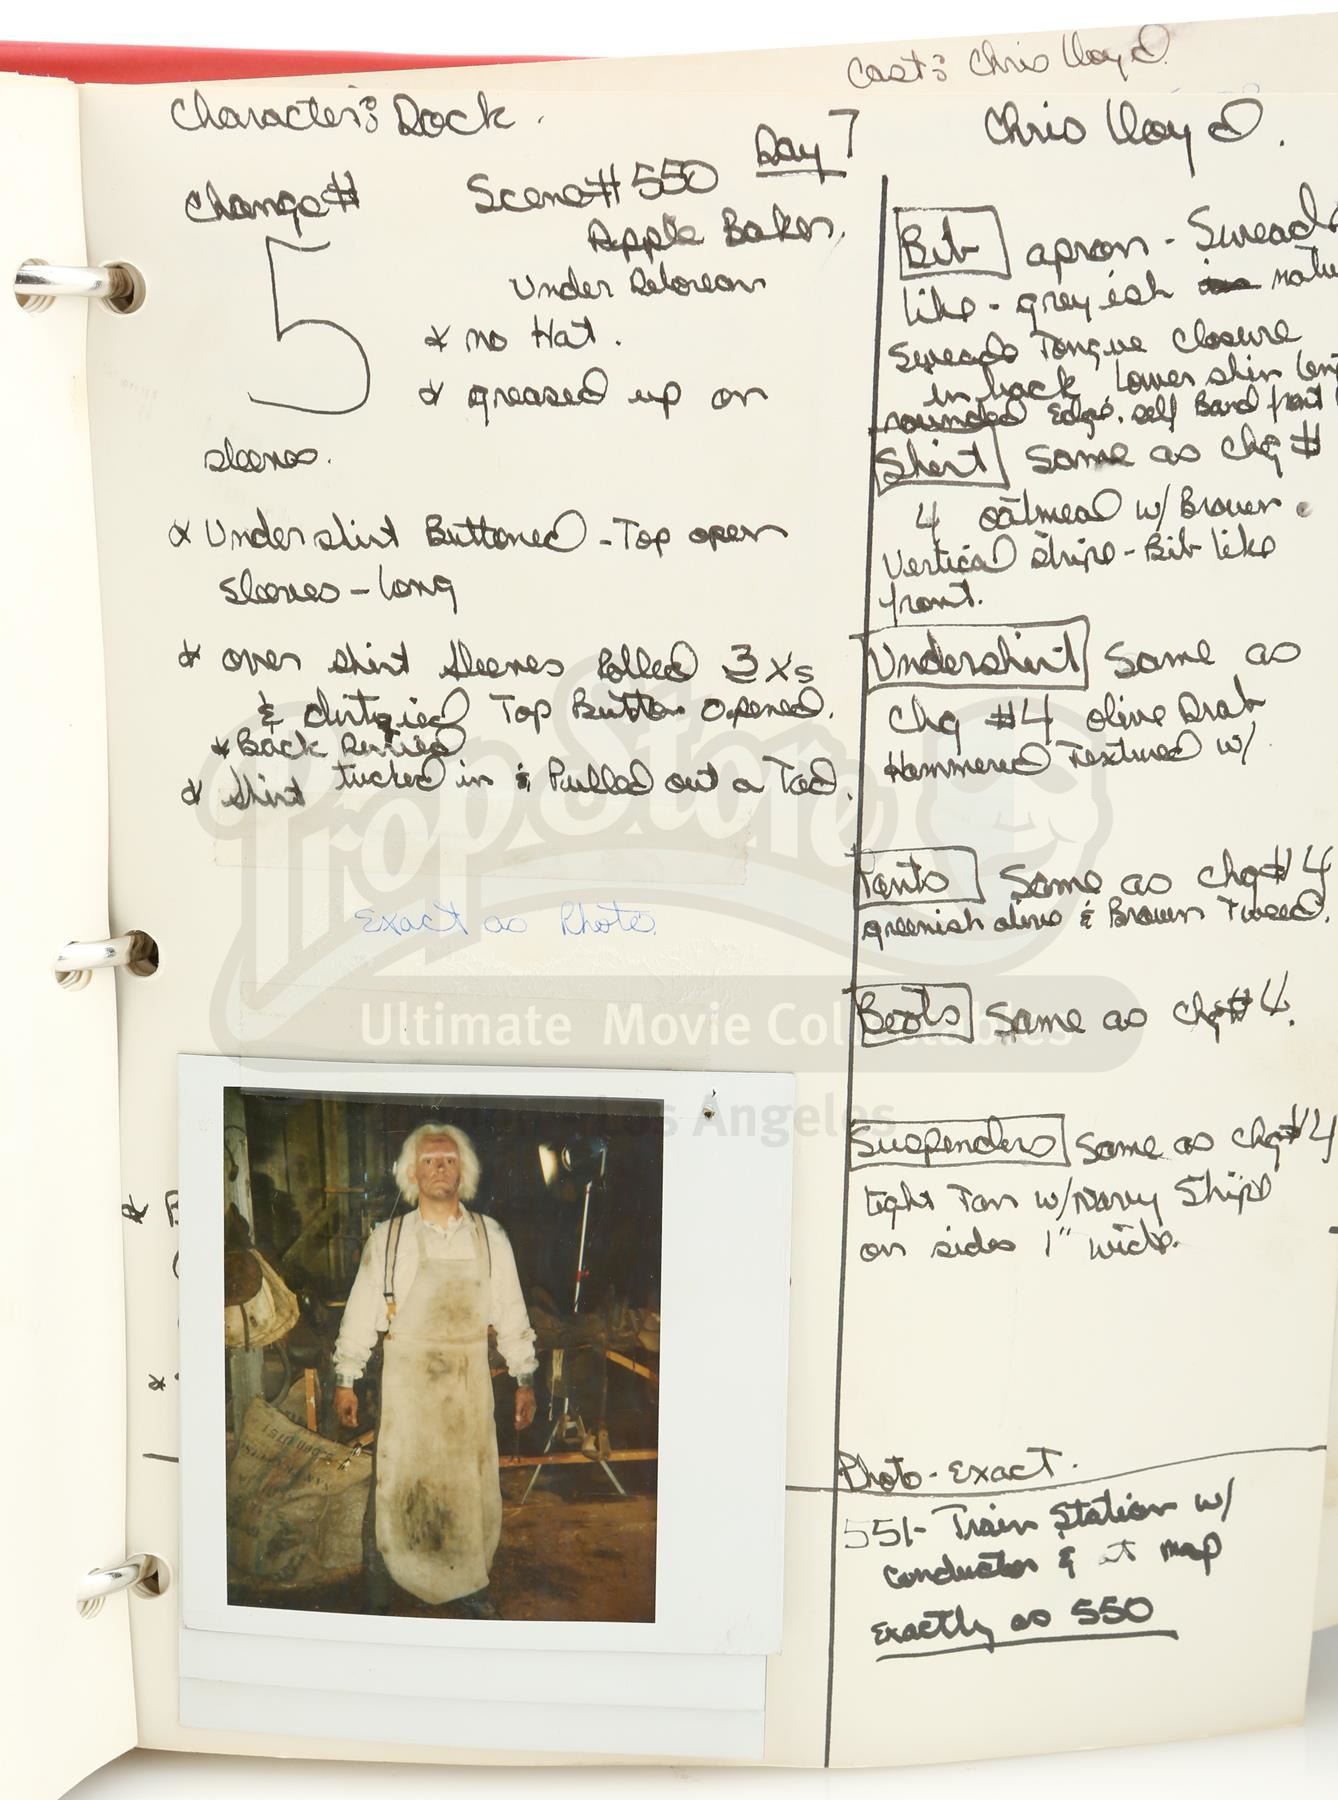 Cast: Chris Lloyd
Character: Dock.
Day 7
Chris Lloyd.
Change#
5
Scene# 550
Apple Baker.
Under Delorean
* no Hat.
* greased up on
sleeves.
* Undershirt Buttoned - Top open
sleeves - long
* over shirt sleeves Rolled 3 Xs
& dirtyied Top Button opened.
* Back
* shirt tucked in & Pulled out a Tad.
Exact as Photo.
* B
*
Bib apron -
like - greyish
Tongue closure
in back, Lower
rounded Edge. self Band front
Shirt same as chg #
4 oatmeal w/ Brown
Vertical stripe - Bib like
front.
Undershirt Same as
chg #4 olive Drab
Hammered Textured w/
Pants Same as chg#4
greenish olive & Brown Tweed.
Boots Same as chg#4.
Suspenders Same as chg#4
light Tan w/ Navy Stripe
on sides 1" wide.
Photo - Exact.
551- Train Station w/
conductor & at map
exactly as 550
Prop Store
Ultimate Movie Collectables
London - Los Angeles